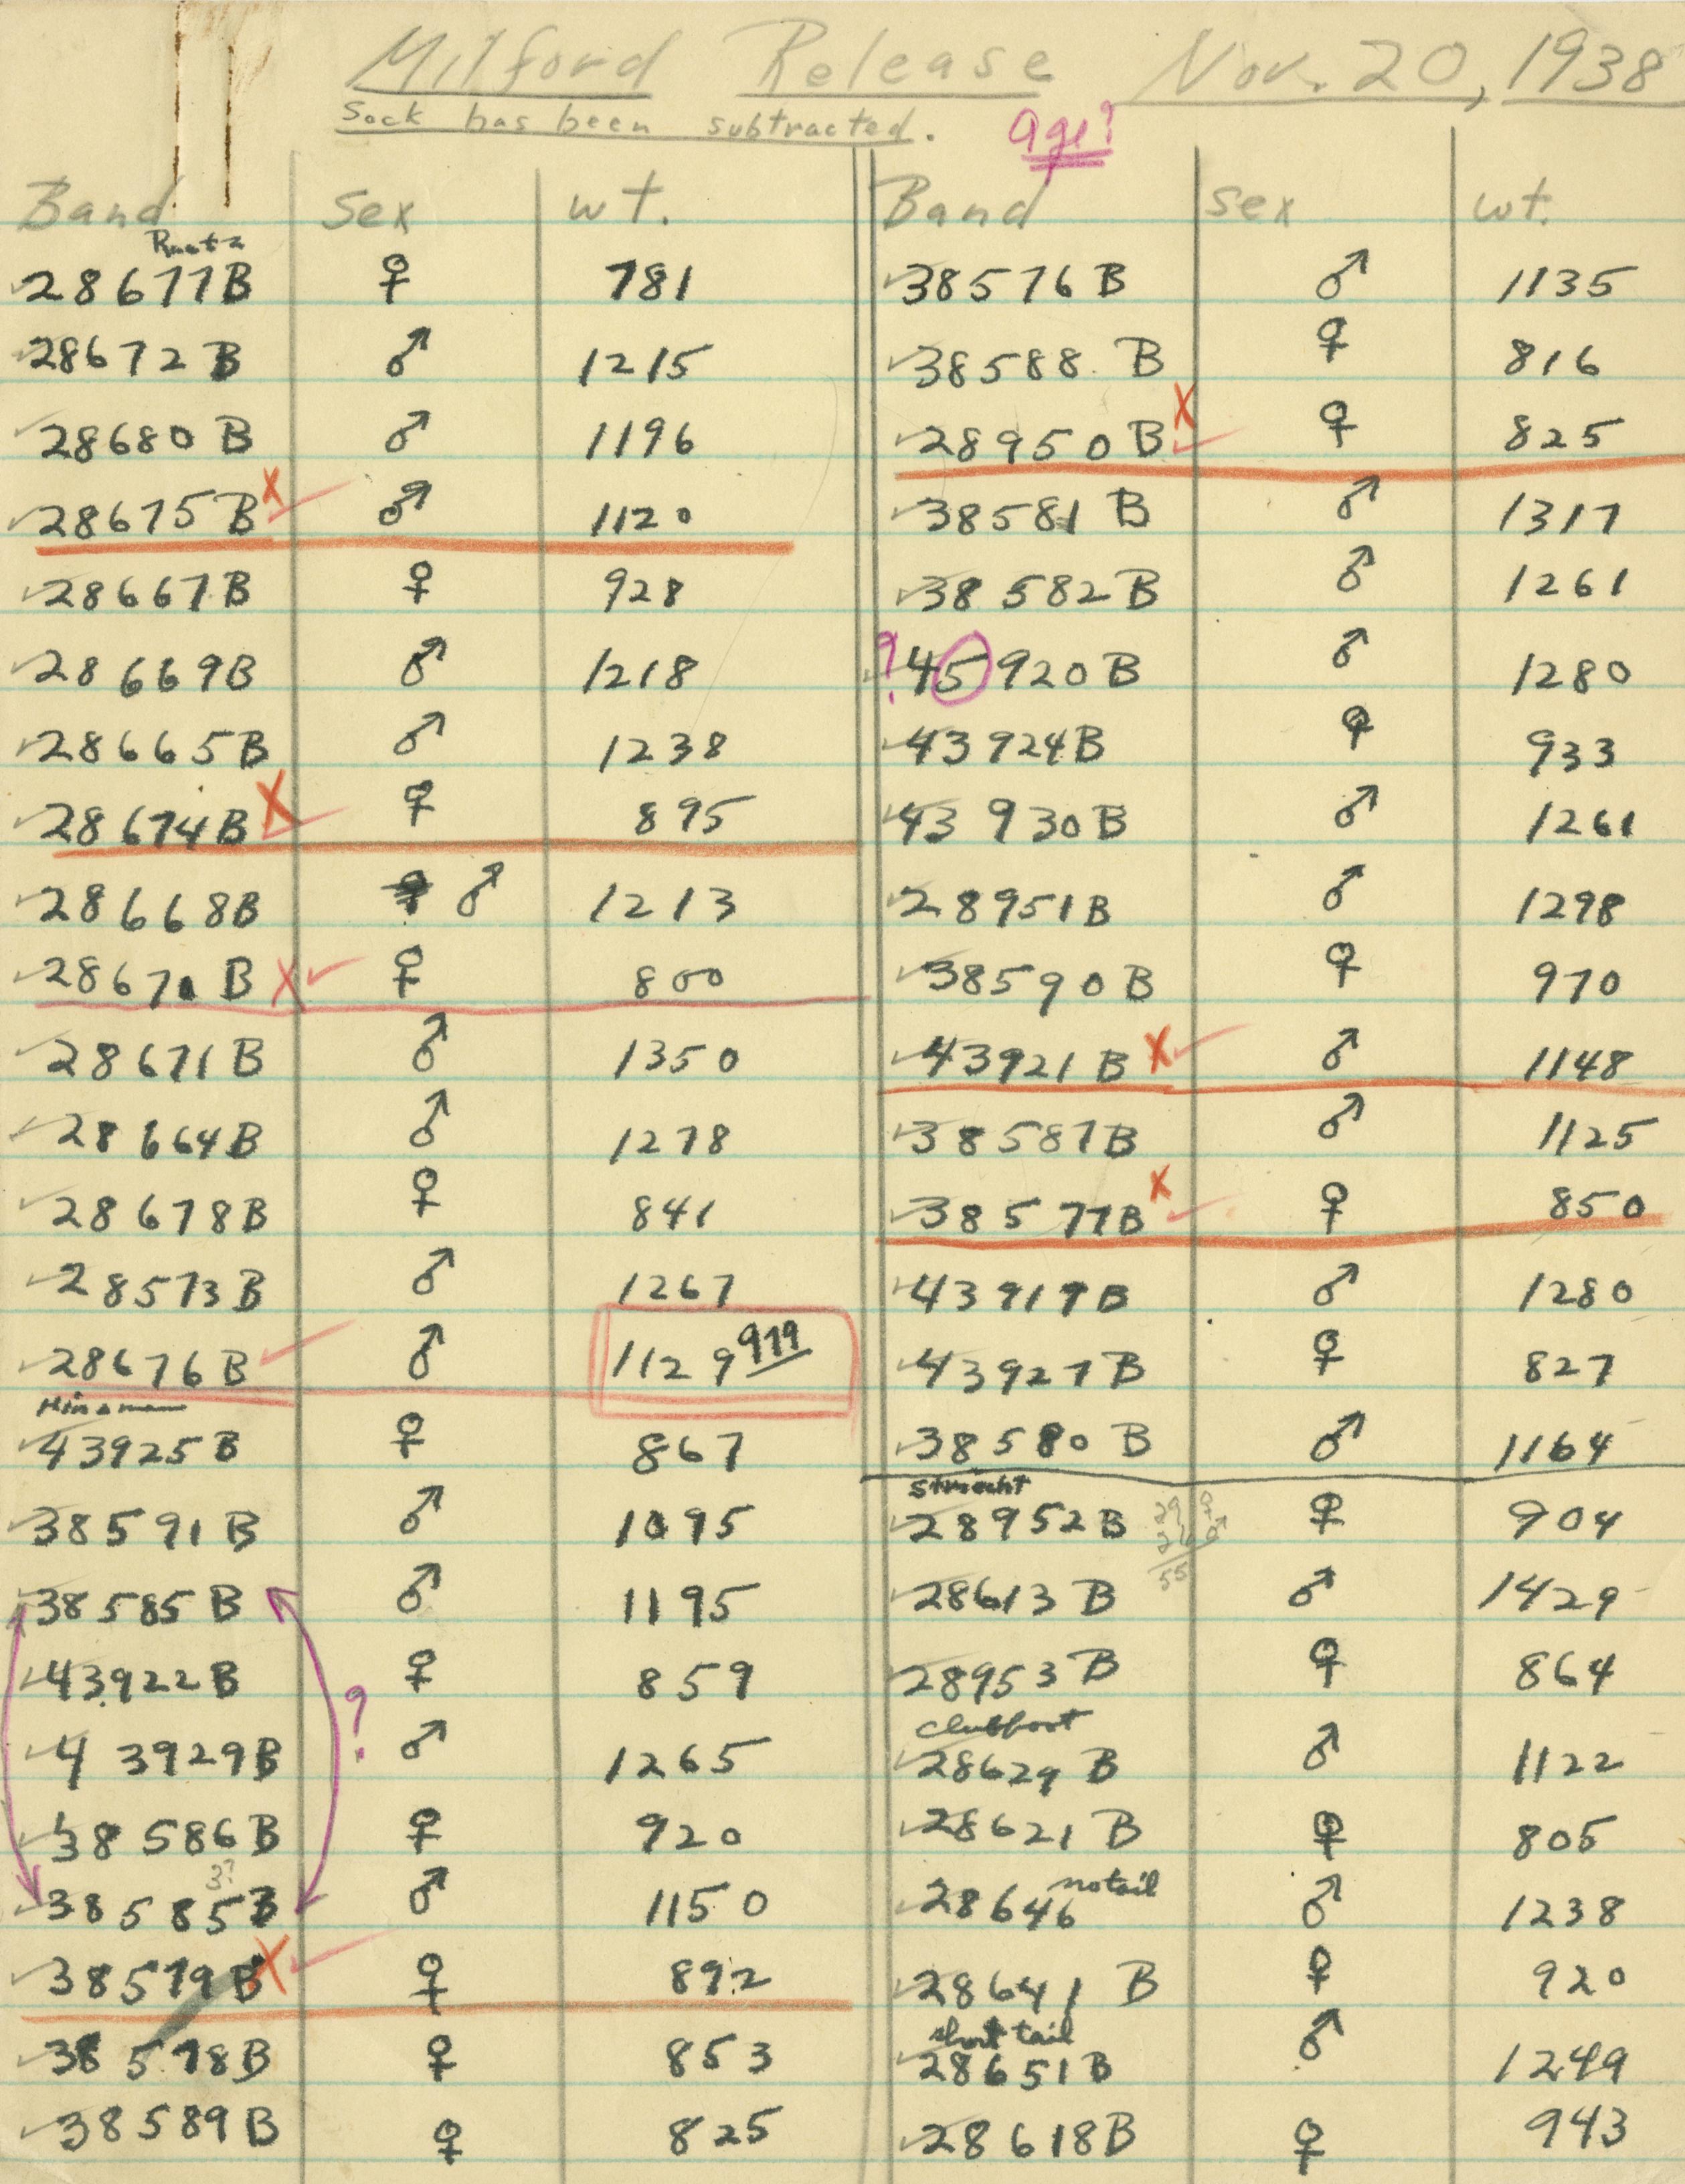 Milford Release Nov. 20, 1938
Sock has been subtracted.
age?
Band Sex wt.
28677B ♀ 781
28672B ♂ 1215
28680B ♂ 1196
28675B x ✓ ♂ 1120
28667B ♀ 928
28669B ♂ 1218
28665B ♂ 1238
28674B X ✓ ♀ 895
28668B ♂ 1213
28670B X ✓ ♀ 800
28671B ♂ 1350
28664B ♂ 1278
28678B ♀ 841
28573B ♂ 1267
28676B ✓ ♂ 1129 979
Hinaman
43925B ♀ 867
38591B ♂ 1095
38585B ♂ 1195
43922B ♀ 859
?
43929B ♂ 1265
38586B ♀ 920
3?
38585B ♂ 1150
38579B X ✓ ♀ 892
38578B ♀ 853
38589B ♀ 825
Band Sex wt.
38576B ♂ 1135
38588B ♀ 816
28950B x ✓ ♀ 825
38581B ♂ 1317
38582B ♂ 1261
? 45920B ♂ 1280
43924B ♀ 933
43930B ♂ 1261
28951B ♂ 1298
38590B ♀ 970
43921B x ✓ ♂ 1148
38587B ♂ 1125
38577B x ✓ ♀ 850
43919B ♂ 1280
43927B ♀ 827
38580B ♂ 1164
28952B ♀ 904
29 ♀
26 ♂
55
28613B ♂ 1429
28953B ♀ 864
clubfoot
28629B ♂ 1122
28621B ♀ 805
no tail
28646 ♂ 1238
28641B ♀ 920
short tail
28651B ♂ 1249
28618B ♀ 943